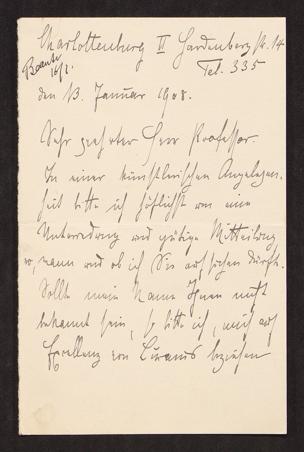 Charlottenburg II Hardenbergstr. 14
Tel. 335
Beantw.
16/1.
den 13. Januar 1908.
Sehr geehrter Herr Professor.
In einer künstlerischen Angelegen-
heit bitte ich höflichst um eine
Unterredung und gütige Mitteilung
wo, wann und ob ich Sie aufsuchen dürfte.
Sollte mein Name Ihnen nicht
bekannt sein, so bitte ich, mich auf
Excellenz von Lucanus beziehen